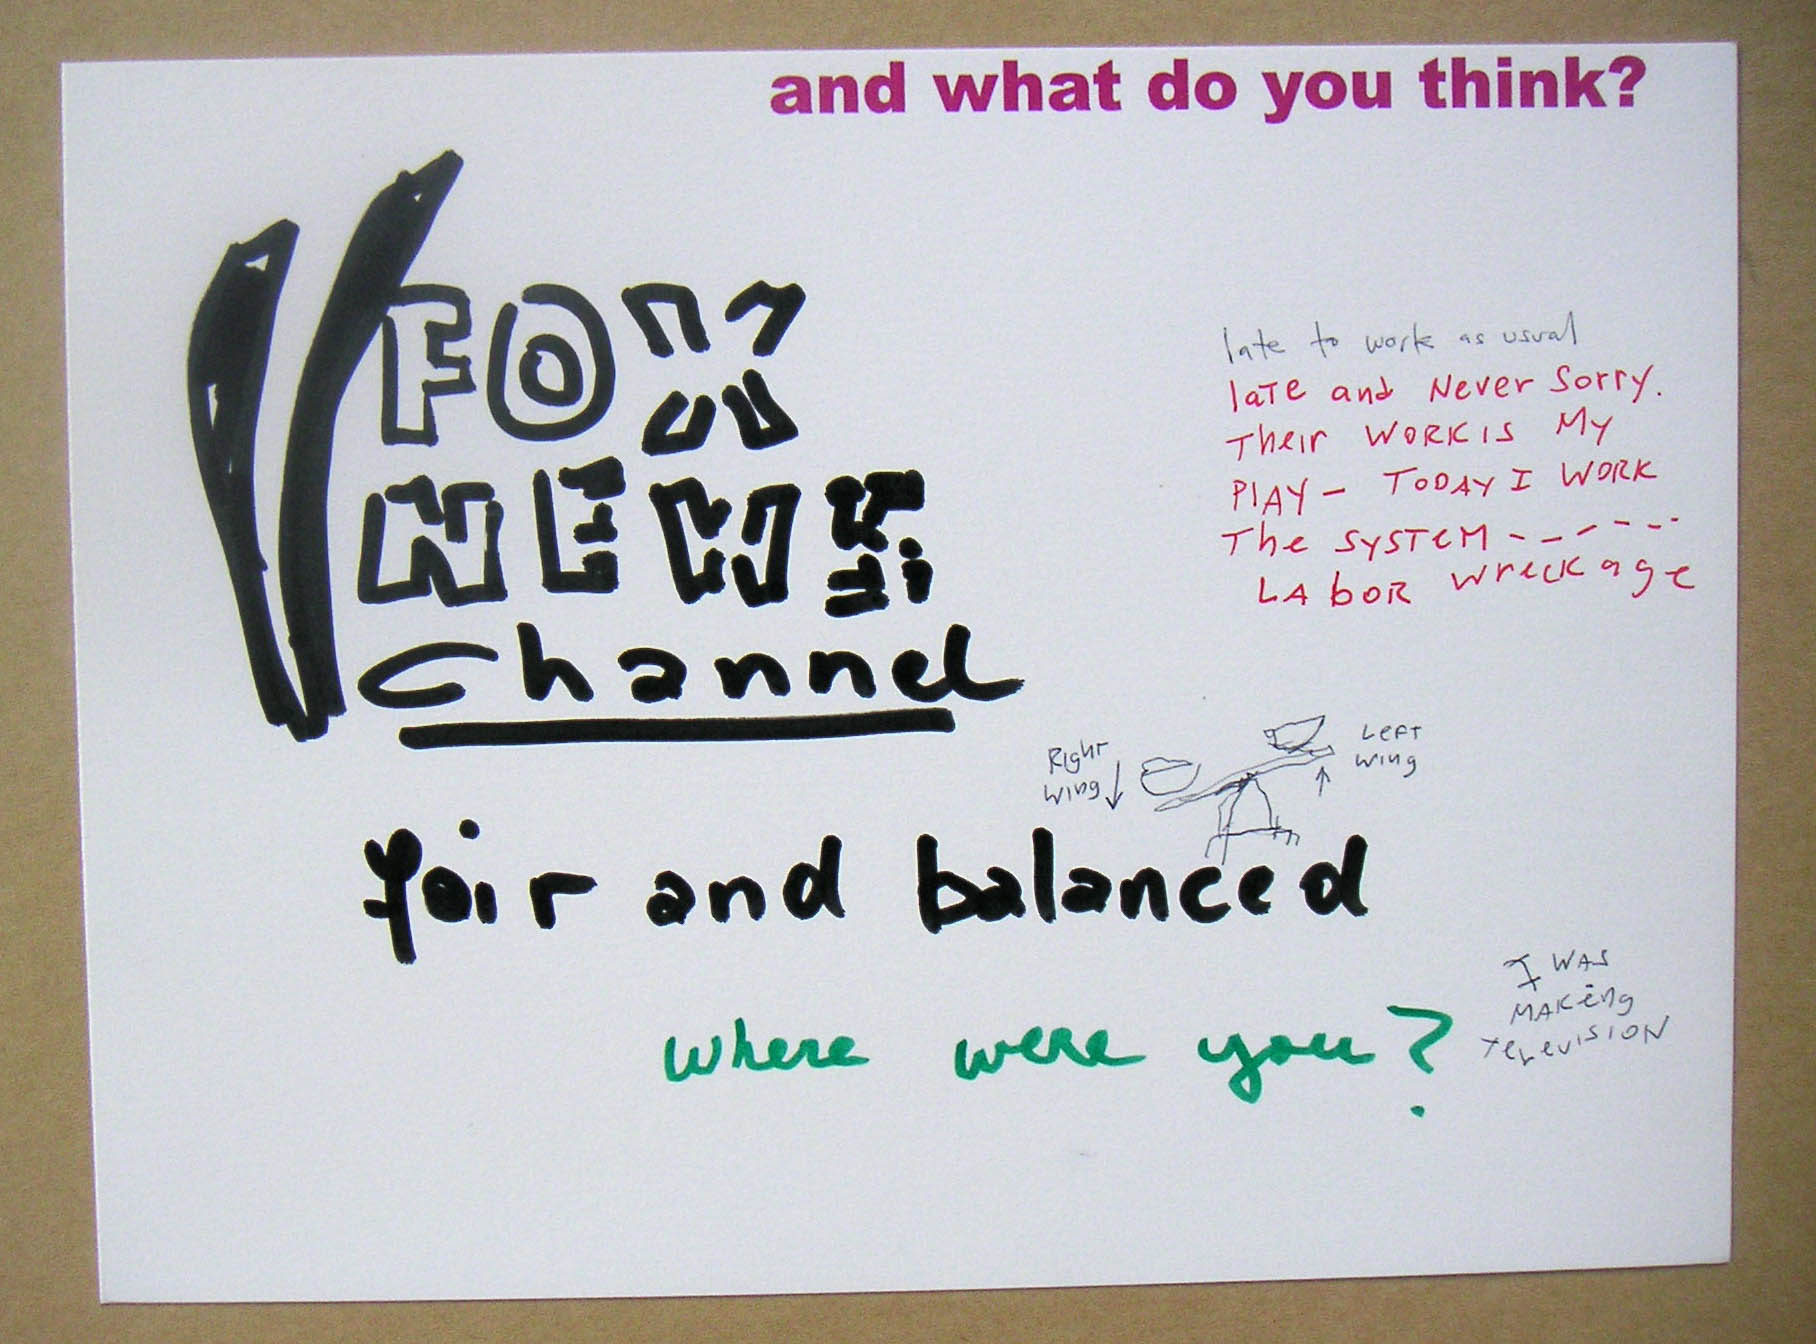 and what do you think?
FOX
NEWS
channel
late to work as usual
late and Never Sorry.
Their WORK IS My
PlAY - TODAY I WORK
The SYSTEM - - - - - -
LAbOR wreckage
Right
wing
LeFT
wing
fair and balanced
where were you?
I WAS
MAKing
TeLevISION